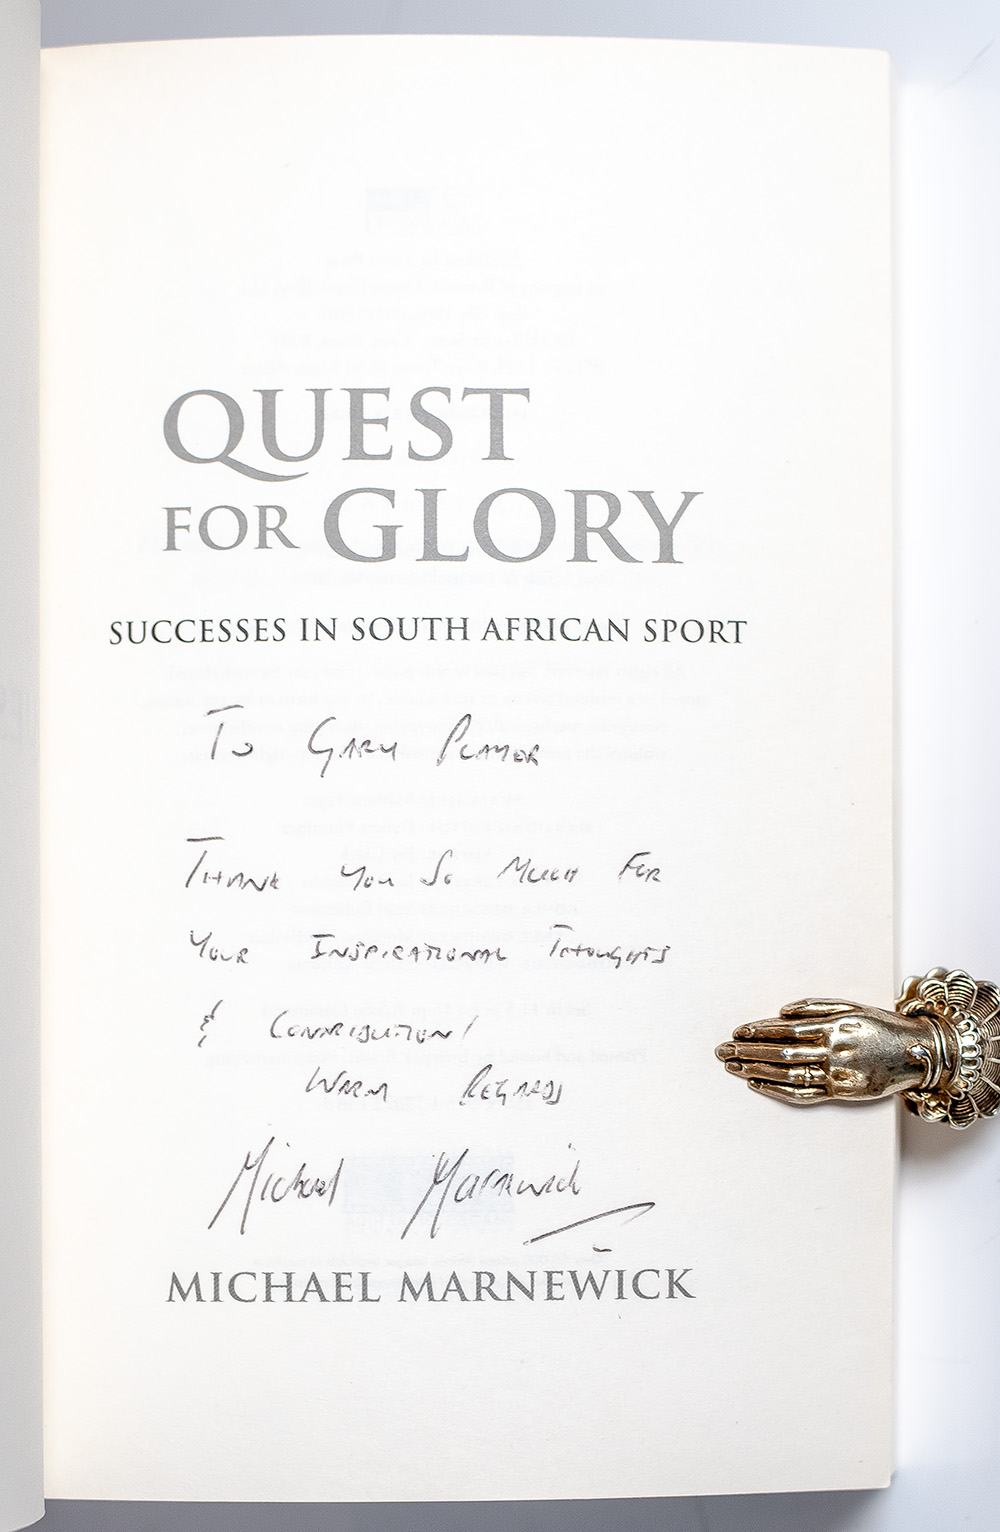 QUEST
FOR GLORY
SUCCESSES IN SOUTH AFRICAN SPORT
To GARY PLAYER
THANK YOU SO MUCH FOR
YOUR INSPIRATIONAL THOUGHTS
& CONTRIBUTION!
WARM REGARDS
Michael Marnewick
MICHAEL MARNEWICK